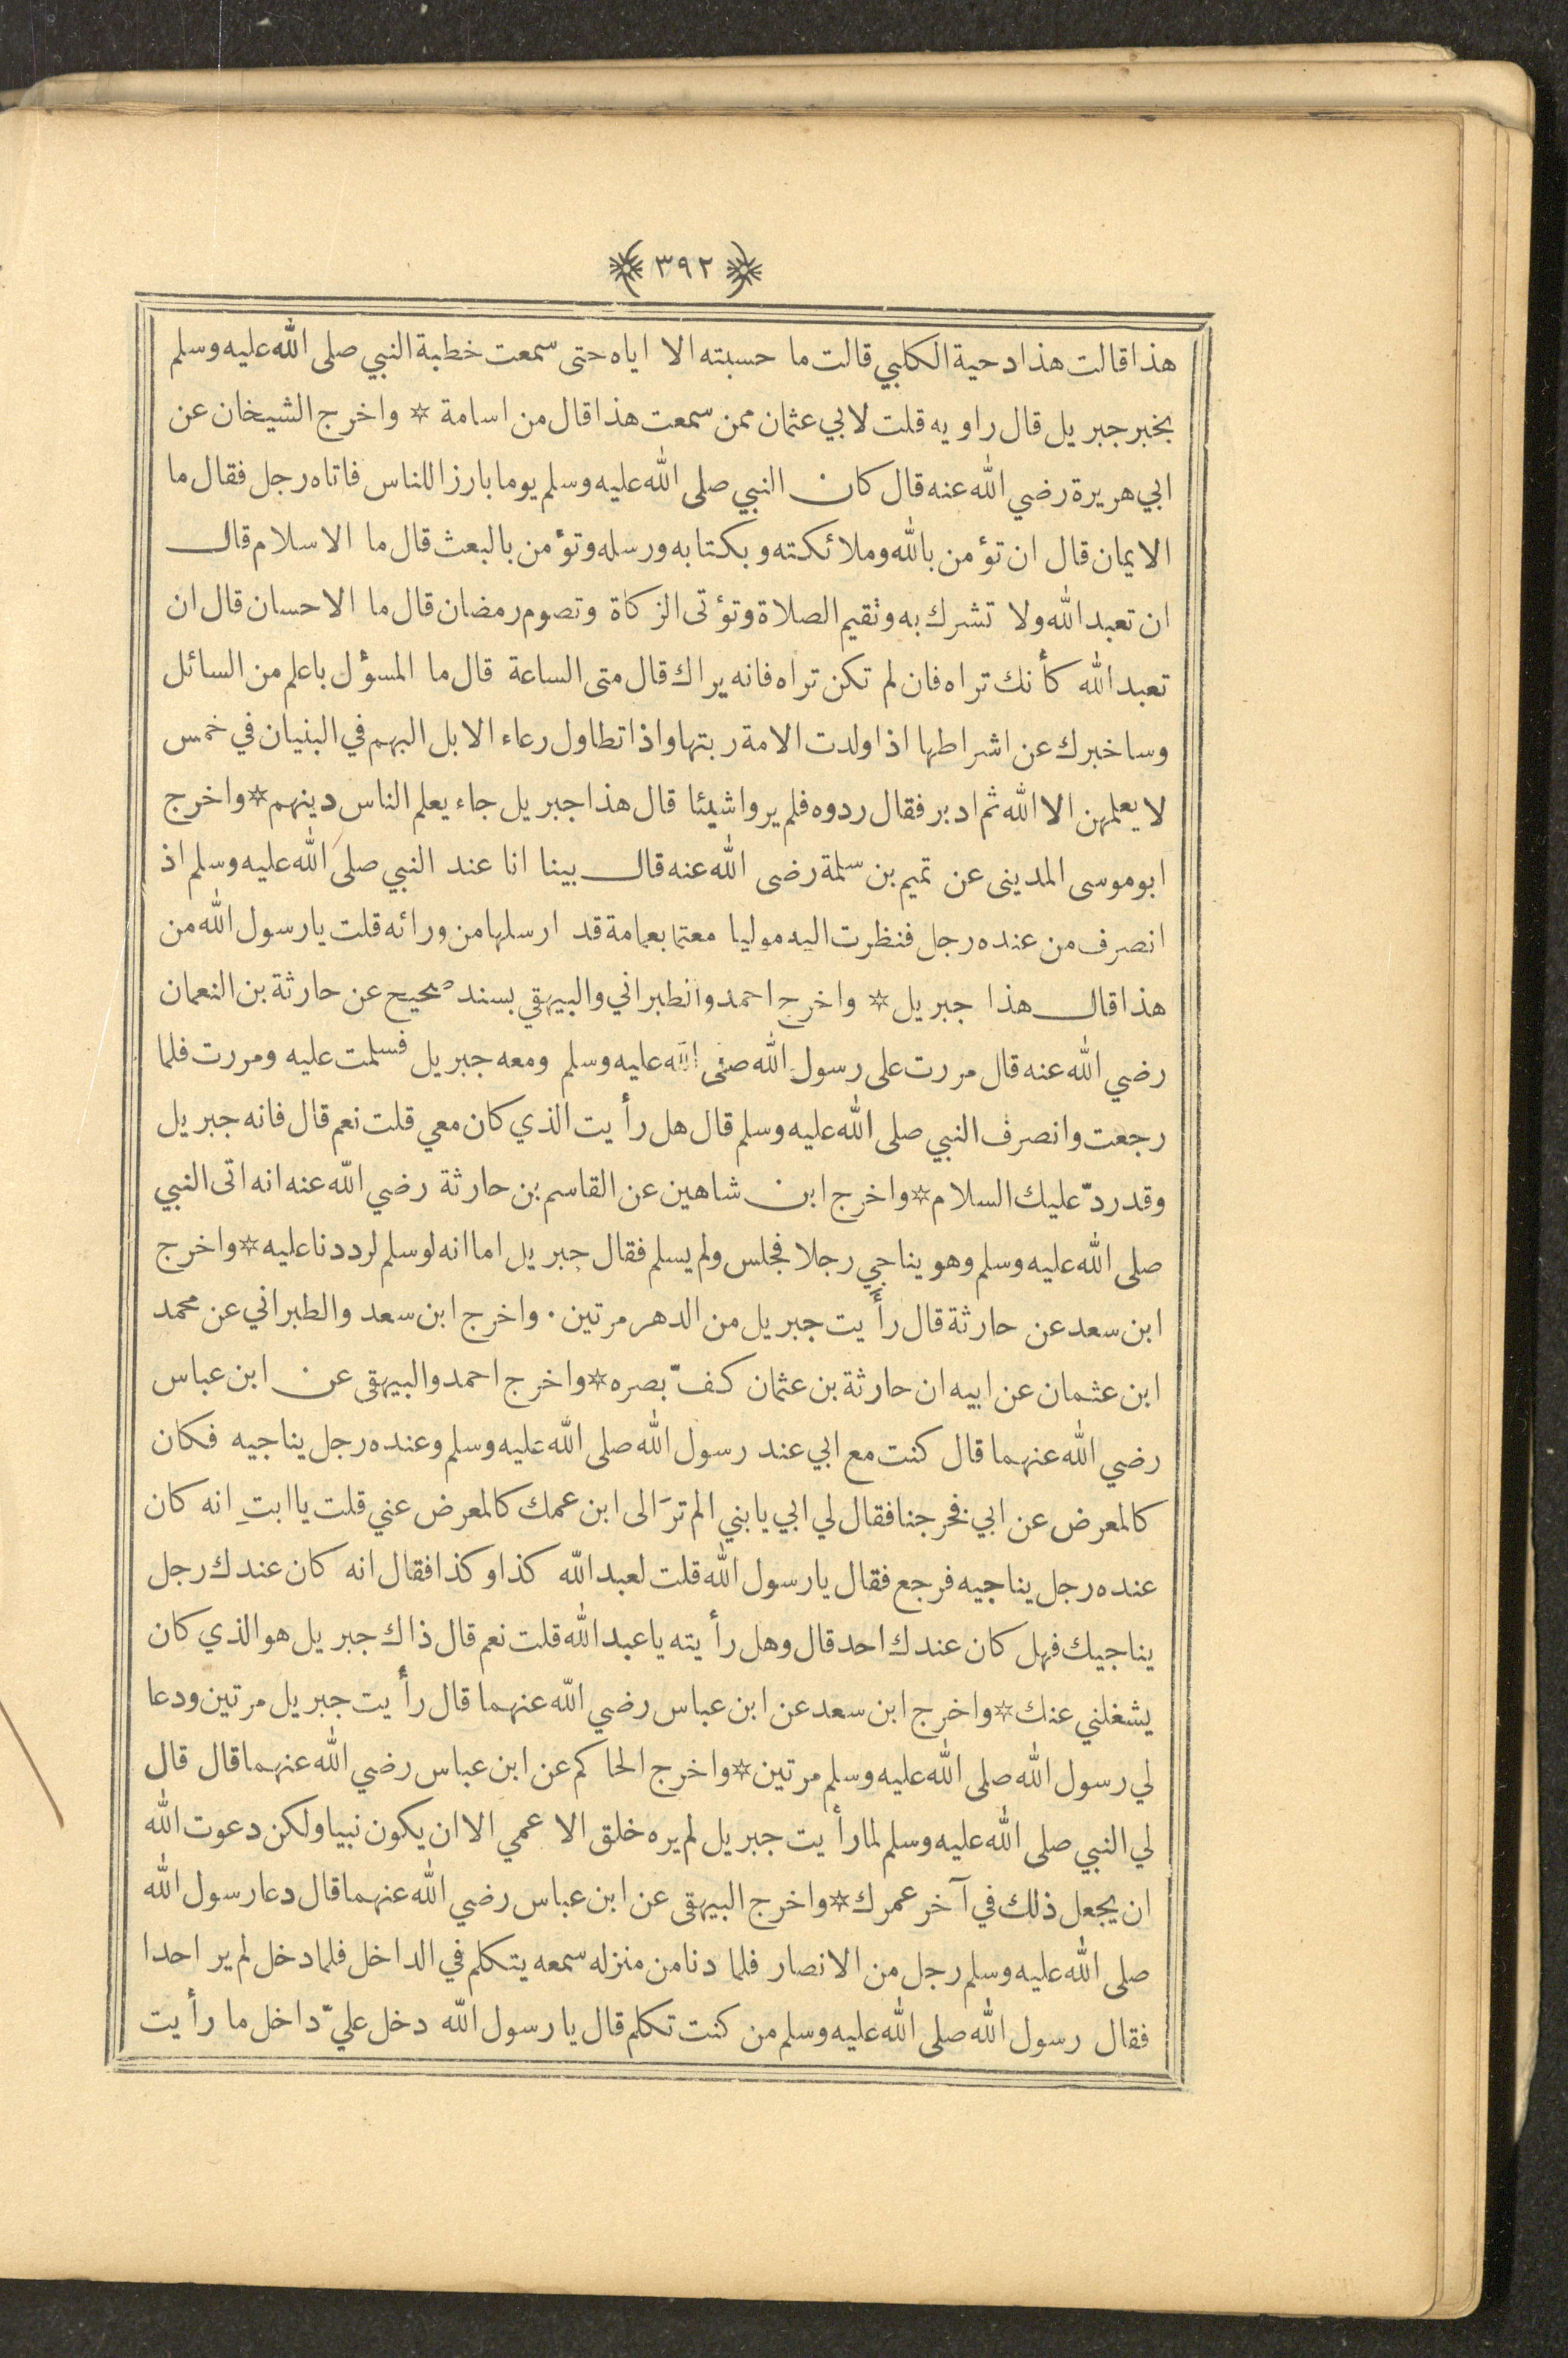 ٣٩٢
هذا قالت هذا دحية الكلبي قالت ما حسبته الا اياه حتى سمعت خطبة النبي صلى الله عليه وسلم
بخبر جبريل قال راويه قلت لابي عثمان ممن سمعت هذا قال من اسامة * واخرج الشيخان عن
ابي هريرة رضي الله عنه قال كان النبي صلى الله عليه وسلم يوما بارزا للناس فاتاه رجل فقال ما
الايمان قال ان تؤمن بالله وملائكته وبكتابه ورسله وتؤمن بالبعث قال ما الاسلام قال
ان تعبد الله ولا تشرك به وتقيم الصلاة وتؤتى الزكاة وتصوم رمضان قال ما الاحسان قال ان
تعبد الله كأنك تراه فان لم تكن تراه فانه يراك قال متى الساعة قال ما المسؤل باعلم من السائل
وساخبرك عن اشراطها اذا ولدت الامة ربتها واذا تطاول رعاء الابل البهم في البنيان في خمس
لا يعلمهن الا الله ثم ادبر فقال ردوه فلم يروا شيئا قال هذا جبريل جاء يعلم الناس دينهم * واخرج
ابو موسى المدينى عن تميم بن سلمة رضى الله عنه قال بينا انا عند النبي صلى الله عليه وسلم اذ
انصرف من عنده رجل فنظرت اليه موليا معتما بعمامة قد ارسلها من ورائه قلت يا رسول الله من
هذا قال هذا جبريل * واخرج احمد والطبراني والبيهقي بسند صحيح عن حارثة بن النعمان
رضي الله عنه قال مررت على رسول الله صلى الله عليه وسلم ومعه جبريل فسلمت عليه ومررت فلما
رجعت وانصرف النبي صلى الله عليه وسلم قال هل رأيت الذي كان معي قلت نعم قال فانه جبريل
وقد ردّ عليك السلام * واخرج ابن شاهين عن القاسم بن حارثة رضي الله عنه انه اتى النبي
صلى الله عليه وسلم وهو يناجي رجلا فجلس ولم يسلم فقال جبريل اما انه لو سلم لرددنا عليه * واخرج
ابن سعد عن حارثة قال رأيت جبريل من الدهر مرتين . واخرج ابن سعد والطبراني عن محمد
ابن عثمان عن ابيه ان حارثة بن عثمان كفّ بصره * واخرج احمد والبيهقى عن ابن عباس
رضي الله عنهما قال كنت مع ابي عند رسول الله صلى الله عليه وسلم وعنده رجل يناجيه فكان
كالمعرض عن ابي فخرجنا فقال لي ابي يا بني الم ترَ الى ابن عمك كالمعرض عني قلت يا ابتِ انه كان
عنده رجل يناجيه فرجع فقال يا رسول الله قلت لعبد الله كذا وكذا فقال انه كان عندك رجل
يناجيك فهل كان عندك احد قال وهل رأيته يا عبد الله قلت نعم قال ذاك جبريل هو الذي كان
يشغلني عنك * واخرج ابن سعد عن ابن عباس رضي الله عنهما قال رأيت جبريل مرتين ودعا
لي رسول الله صلى الله عليه وسلم مرتين * واخرج الحاكم عن ابن عباس رضي الله عنهما قال قال
لي النبي صلى الله عليه وسلم لما رأيت جبريل لم يره خلق الا عمي الا ان يكون نبيا ولكن دعوت الله
ان يجعل ذلك في آخر عمرك * واخرج البيهقى عن ابن عباس رضي الله عنهما قال دعا رسول الله
صلى الله عليه وسلم رجل من الانصار فلما دنا من منزله سمعه يتكلم في الداخل فلما دخل لم ير احدا
فقال رسول الله صلى الله عليه وسلم من كنت تكلم قال يا رسول الله دخل عليّ داخل ما رأيت